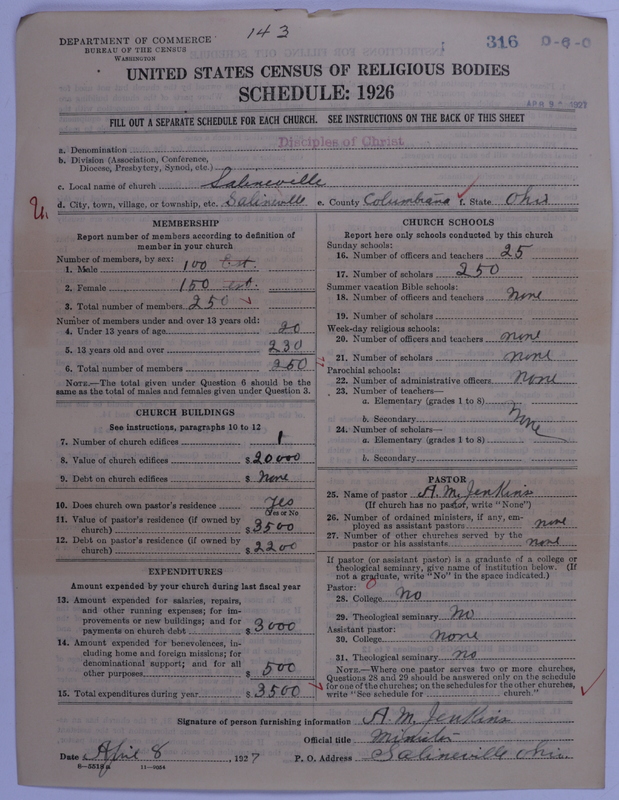 143
DEPARTMENT OF COMMERCE
BUREAU OF THE CENSUS
WASHINGTON
316 0-6-0
UNITED STATES CENSUS OF RELIGIOUS BODIES
SCHEDULE: 1926
APR 9 1927
FILL OUT A SEPARATE SCHEDULE FOR EACH CHURCH. SEE INSTRUCTIONS ON THE BACK OF THIS SHEET
a. Denomination Disciples of Christ
b. Division (Association, Conference,
Diocese, Presbytery, Synod, etc.)
c. Local name of church Salineville
d. City, town, village, or township, etc. Salineville e. County Columbiana f. State Ohio
MEMBERSHIP
Report number of members according to definition of
member in your church
Number of members, by sex:
1. Male 100 Est.
2. Female 150 est.
3. Total number of members 250
Number of members under and over 13 years old:
4. Under 13 years of age 20
5. 13 years old and over 230
6. Total number of members 250
NOTE.—The total given under Question 6 should be
same as the total of males and females given under Question 3.
CHURCH BUILDINGS
See instructions, paragraphs 10 to 12
7. Number of church edifices 1
8. Value of church edifices $ 20000
9. Debt on church edifices $ None
10. Does church own pastor's residence Yes
(Yes or No)
11. Value of pastor's residence (if owned by
church) $ 3500
12. Debt on pastor's residence (if owned by
church) $ 2200
EXPENDITURES
Amount expended by your church during last fiscal year
13. Amount expended for salaries, repairs,
and other running expenses; for im-
provements or new buildings; and for
payments on church debt $ 3000
14. Amount expended for benevolences, in-
cluding home and foreign missions; for
denominational support; and for all
other purposes $ 500
15. Total expenditures during year $ 3500
CHURCH SCHOOLS
Report here only schools conducted by this church
Sunday schools:
16. Number of officers and teachers 25
17. Number of scholars 250
Summer vacation Bible schools:
18. Number of officers and teachers None
19. Number of scholars
Week-day religious schools:
20. Number of officers and teachers none
21. Number of scholars none
Parochial schools:
22. Number of administrative officers none
23. Number of teachers—
a. Elementary (grades 1 to 8)
b. Secondary None
24. Number of scholars—
a. Elementary (grades 1 to 8)
b. Secondary
PASTOR
25. Name of pastor A. M. Jenkins
(If church has no pastor, write "None")
26. Number of ordained ministers, if any, em-
ployed as assistant pastors none
27. Number of other churches served by the
pastor or his assistants none
If pastor (or assistant pastor) is a graduate of a college or
theological seminary, give name of institution below. (If
not a graduate, write "No" in the space indicated.)
Pastor: 0
28. College No
29. Theological seminary No
Assistant pastor:
30. College none
31. Theological seminary no
NOTE.—Where one pastor serves two or more churches,
Questions 28 and 29 should be answered only on the schedule
for one of the churches; on the schedules for the other churches,
write "See schedule for church."
Signature of person furnishing information A. M. Jenkins
Official title Minister
Date April 8, 1927 P. O. Address Salineville Ohio.
8—5518a 11—9054